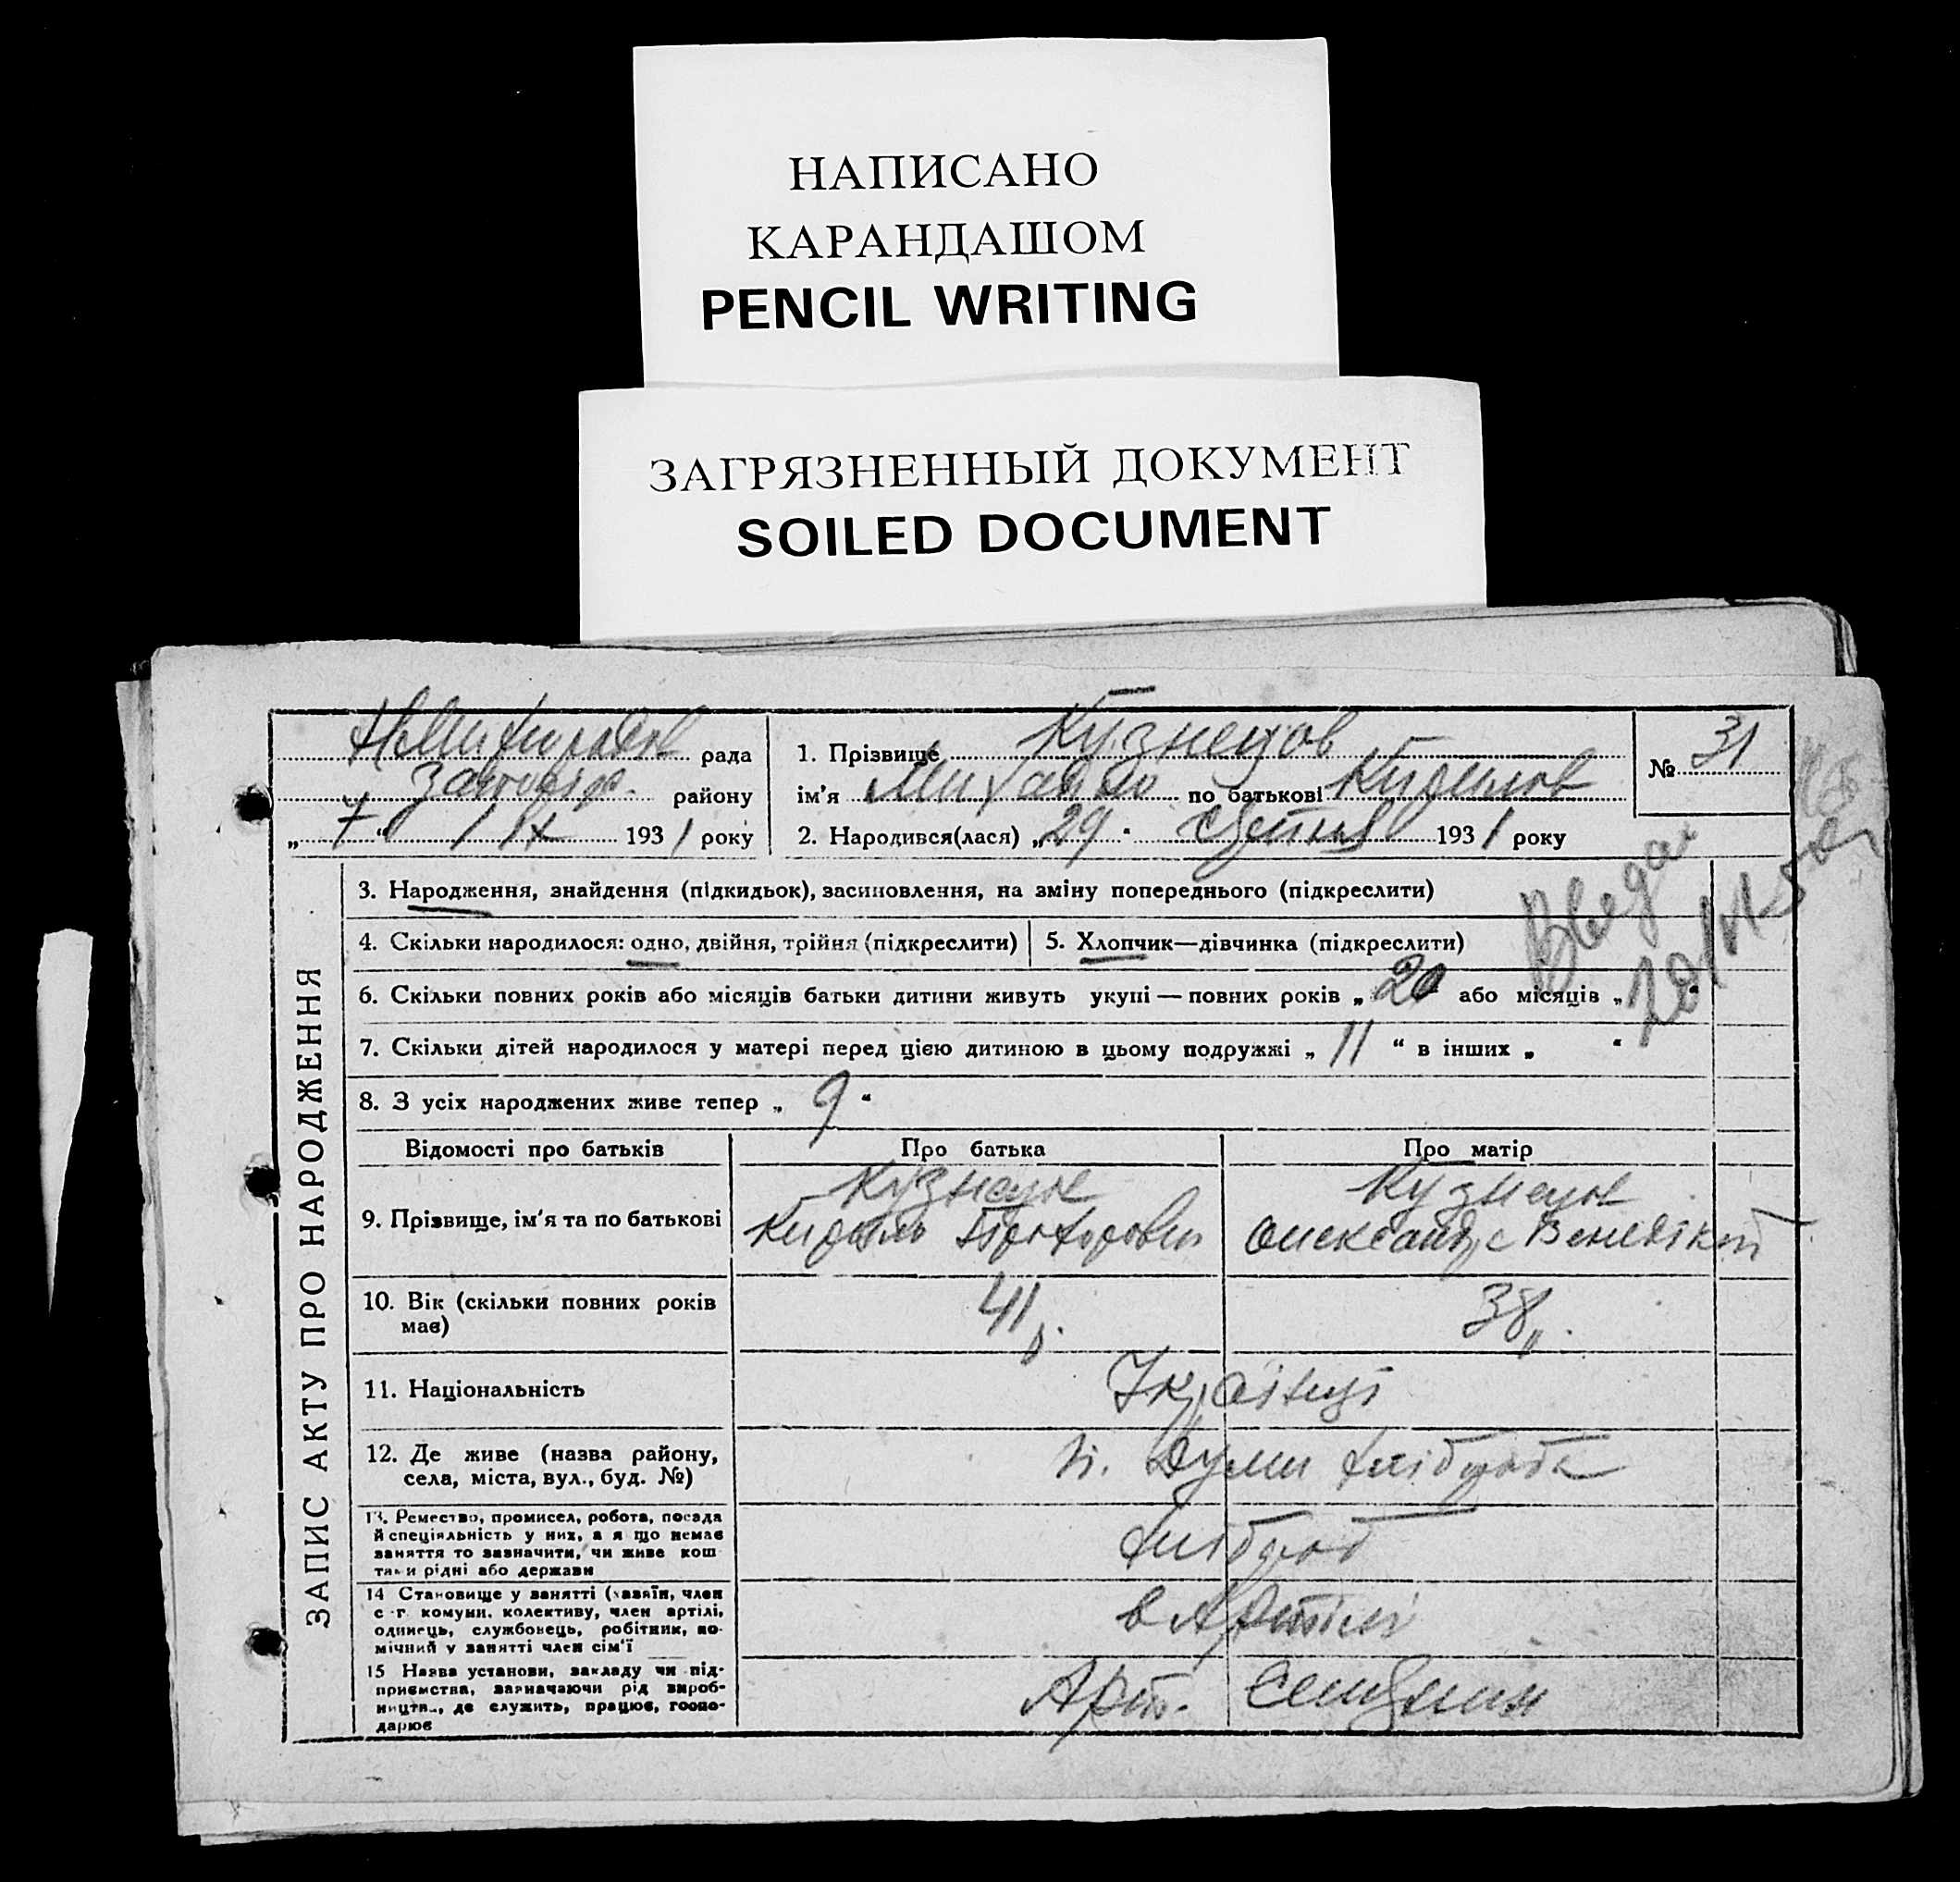 НАПИСАНО
КАРАНДАШОМ
PENCIL WRITING
ЗАГРЯЗНЕННЫЙ ДОКУМЕНТ
SOILED DOCUMENT
рада
району
„ 7 “ / IX 1931 року
1. Прізвище Кузнецов
ім'я Михайло по батькові Кирилов
№ 31
2. Народився(лася) „ 29 “ 1931 року
ЗАПИС АКТУ ПРО НАРОДЖЕННЯ
3. Народження, знайдення (підкидьок), засиновлення, на зміну попереднього (підкреслити)
4. Скільки народилося: одно, двійня, трійня (підкреслити)
5. Хлопчик—дівчинка (підкреслити)
6. Скільки повних років або місяців батьки дитини живуть укупі — повних років „ 20 “ або місяців „ “
7. Скільки дітей народилося у матері перед цією дитиною в цьому подружжі „ 11 “ в інших „ “
8. З усіх народжених живе тепер „ 9 “
Відомості про батьків
Про батька
Про матір
9. Прізвище, ім'я та по батькові
Кузнецов
Кирило Прохорович
Кузнецов
Олександра
10. Вік (скільки повних років
має)
41
38
11. Національність
Українці
12. Де живе (назва району,
села, міста, вул., буд. №)
13. Ремество, промисел, робота, посада
й спеціяльність у них, а я що немає
заняття то зазначити, чи живе кош
тами рідні або держави
хлібороб
14 Становище у занятті (хазяїн, член
с-г комуни, колективу, член артілі,
одинець, службовець, робітник, по-
мічний у занятті член сім'ї
в Артілі
15 Назва установи, закладу чи під-
приємства, зазначаючи рід вироб-
ництв., де служить, працює, госпо-
дарює
Арт.